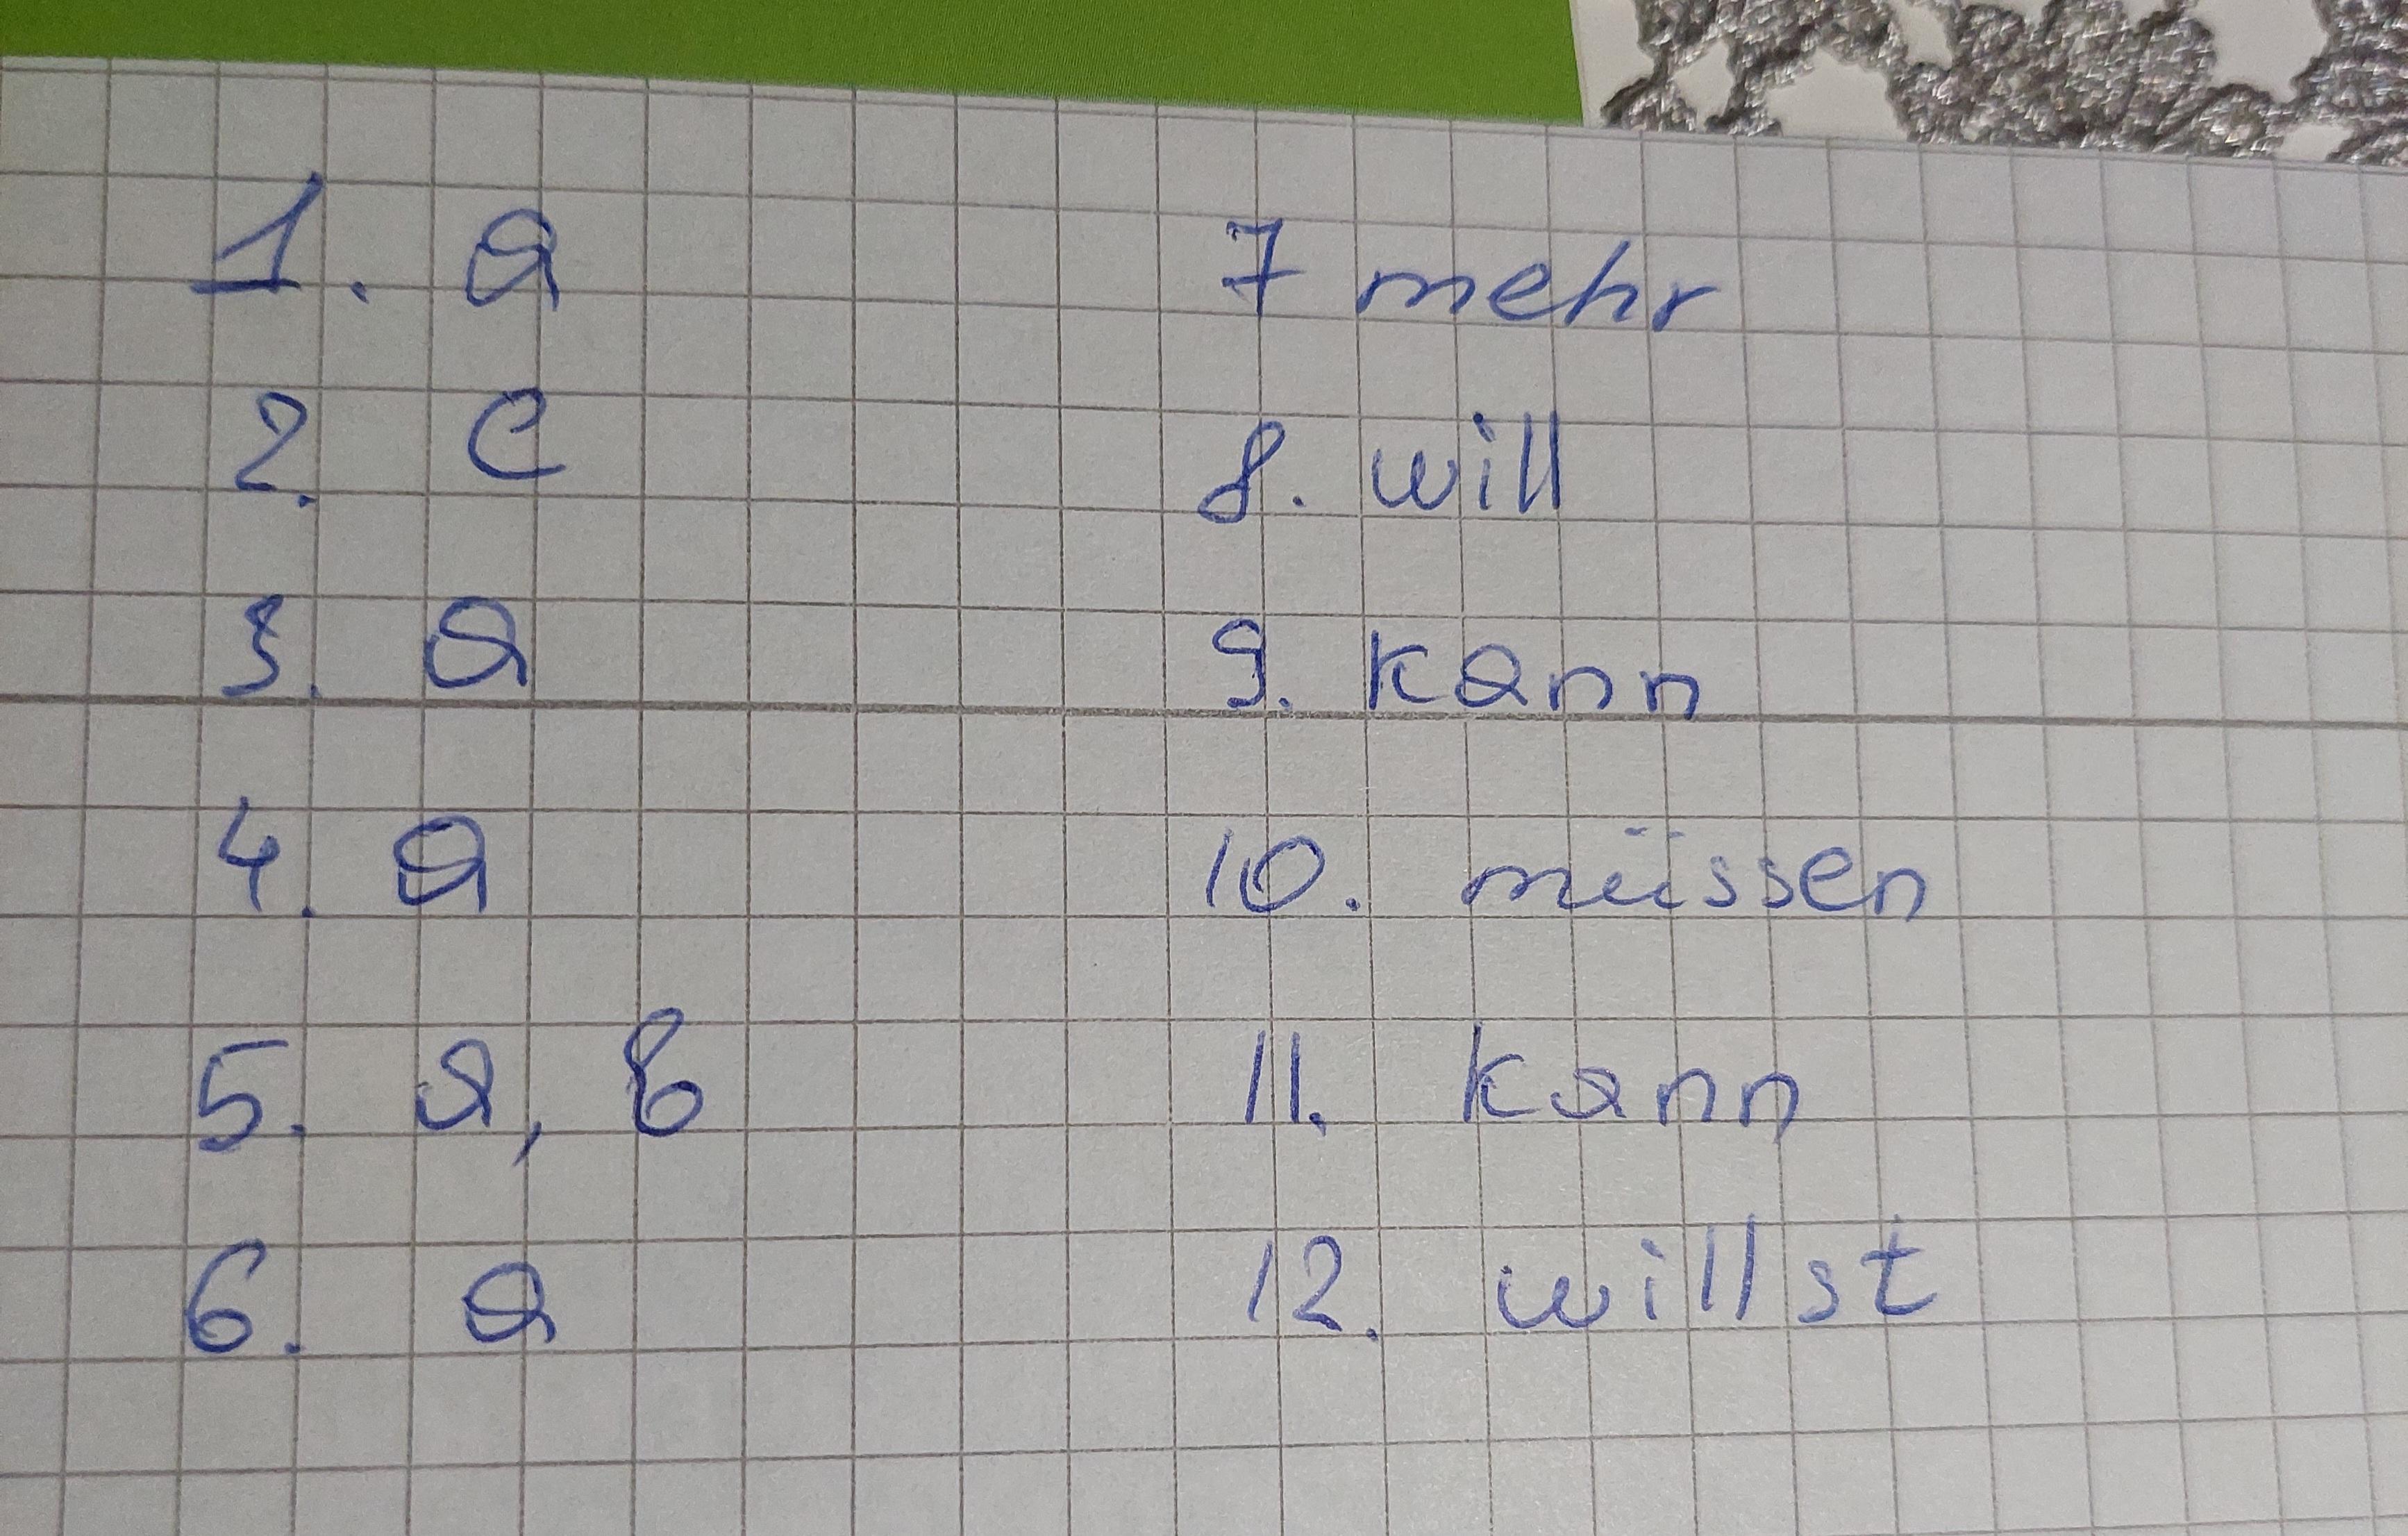 1. a
2. c
3. a
4. a
5. a, b
6. a
7 mehr
8. will
9. kann
10. müssen
11. kann
12. willst